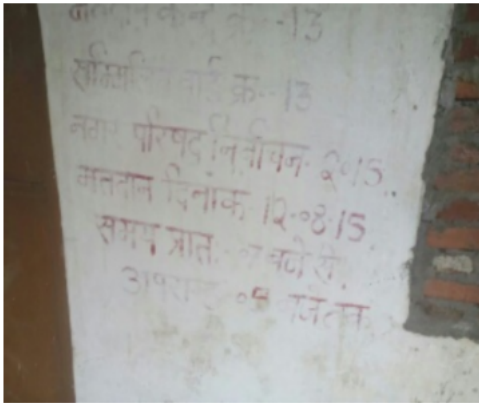 मतदान केन्द्र क्र. -13
सम्मिलित वार्ड क्र.- 13
नगर परिषद निर्वाचन- 2015
मतदान दिनांक 12-08-15
समय प्रातः बजे से
अपरान्ह